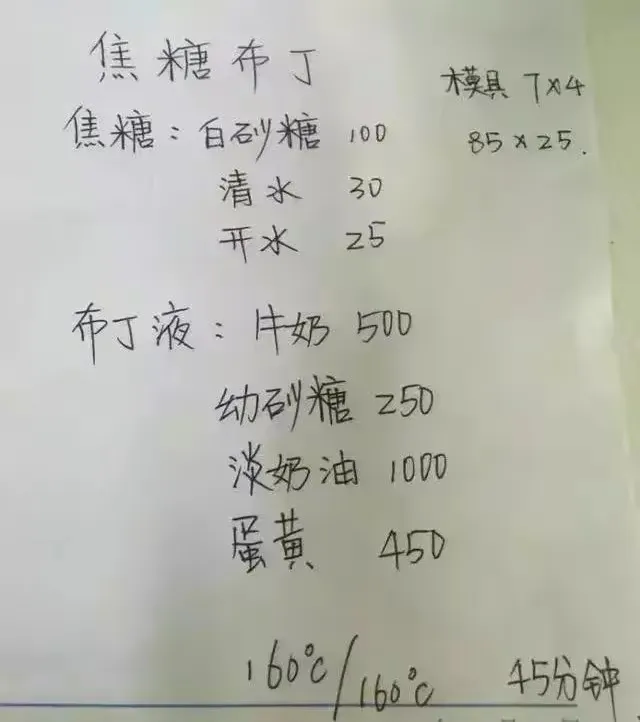 焦糖布丁
模具 7×4
焦糖：白砂糖 100
85×25.
清水 30
开水 25
布丁液：牛奶 500
幼砂糖 250
淡奶油 1000
蛋黄 450
160℃/160℃ 45分钟